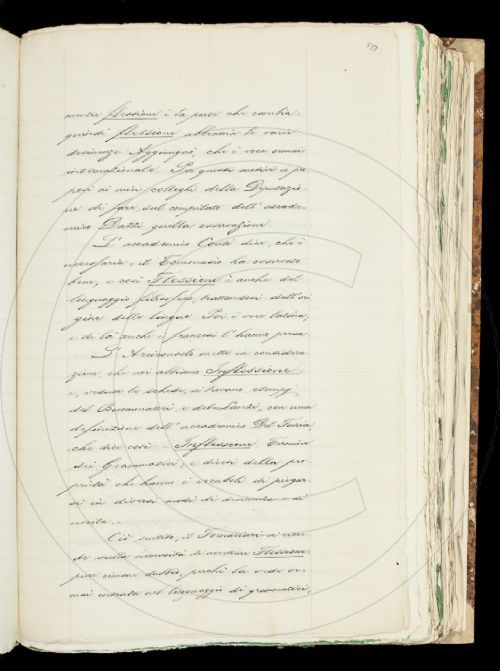 587
mente flessione è la parte che cambia;
quindi flessione abbraccia le varie
desinenze. Aggiungasi, che è voce ormai
internazionale. Per questi motivi io pro
posi ai miei colleghi della Deputazio-
ne di fare sul compilato dell'accade-
mico Dalzi quella osservazione.
L'accademico Conti dice, che è
necessaria; il Tommaseo ha osservato
bene; e così Flessione è anche del
linguaggio filosofico, trattandosi dell'ori
gine delle lingue. Poi è voce latina;
e di là anche i francesi l'hanno presa.
L'Arciconsolo mette in considera
zione, che noi abbiamo Inflessione;
e, vedute le schede, si trovano esempj
del Buommattei e del Lanzi, con una
definizione dell'accademico Del Furia,
che dice così: Inflessione. Termine
dei Grammatici; e dicesi della pro-
prietà che hanno i vocaboli di piegar-
si in diversi modi di desinenza o di
uscita.
Ciò sentito, il Fornaciari si
sulla necessità di accettare Flessione;
pure rimane dubbio, perchè la vede or-
mai entrata nel linguaggio di grammatici,